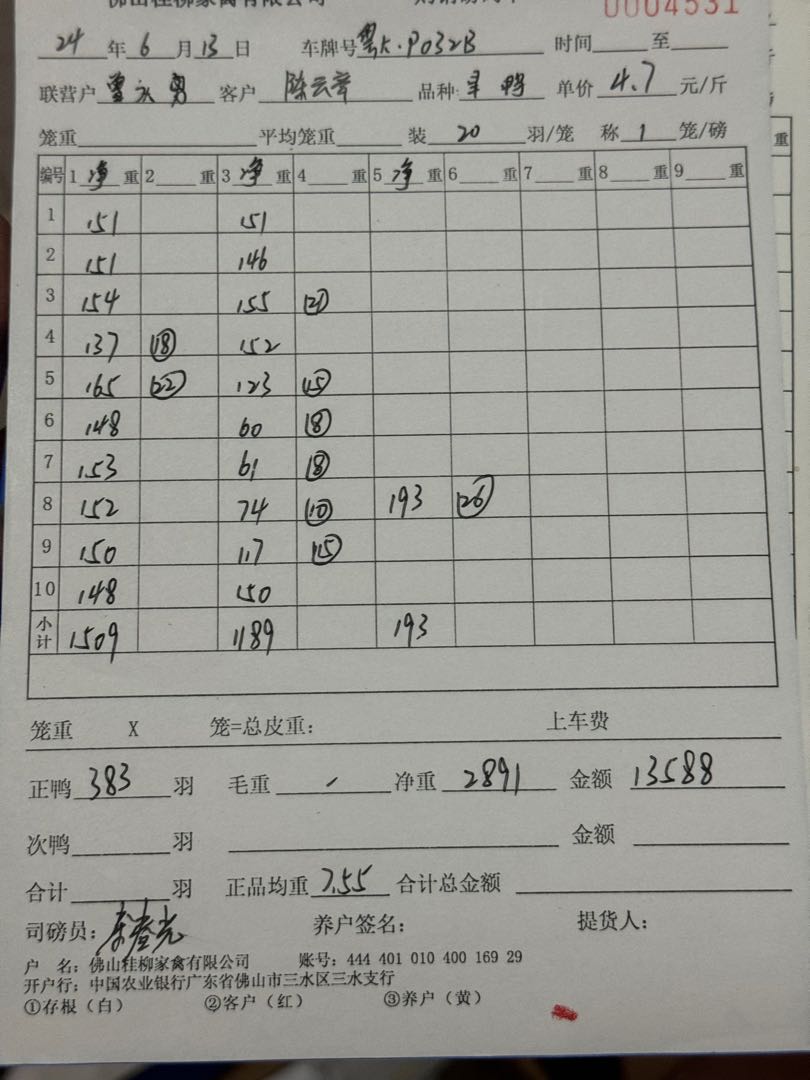 0004531
24 年 6 月 13 日 车牌号 粤K·P032B 时间 至
联营户 曹永勇 客户 陈云章 品种: 羊鸭 单价 4.7 元/斤
笼重 平均笼重 装 20 羽/笼 称 1 笼/磅
编号 1 净 重 2 重 3 净 重 4 重 5 净 重 6 重 7 重 8 重 9 重
1 151 151
2 151 146
3 154 155 (21)
4 137 (18) 152
5 165 (22) 123 (15)
6 148 60 (8)
7 153 61 (8)
8 152 74 (10) 193 (26)
9 150 117 (15)
10 148 150
小计 1509 1189 193
笼重 X 笼=总皮重: 上车费
正鸭 383 羽 毛重 / 净重 2891 金额 13588
次鸭 羽 金额
合计 羽 正品均重 7.55 合计总金额
司磅员: 养户签名: 提货人:
户 名: 佛山桂柳家禽有限公司 账号: 444 401 010 400 169 29
开户行: 中国农业银行广东省佛山市三水区三水支行
①存根(白) ②客户(红) ③养户(黄)